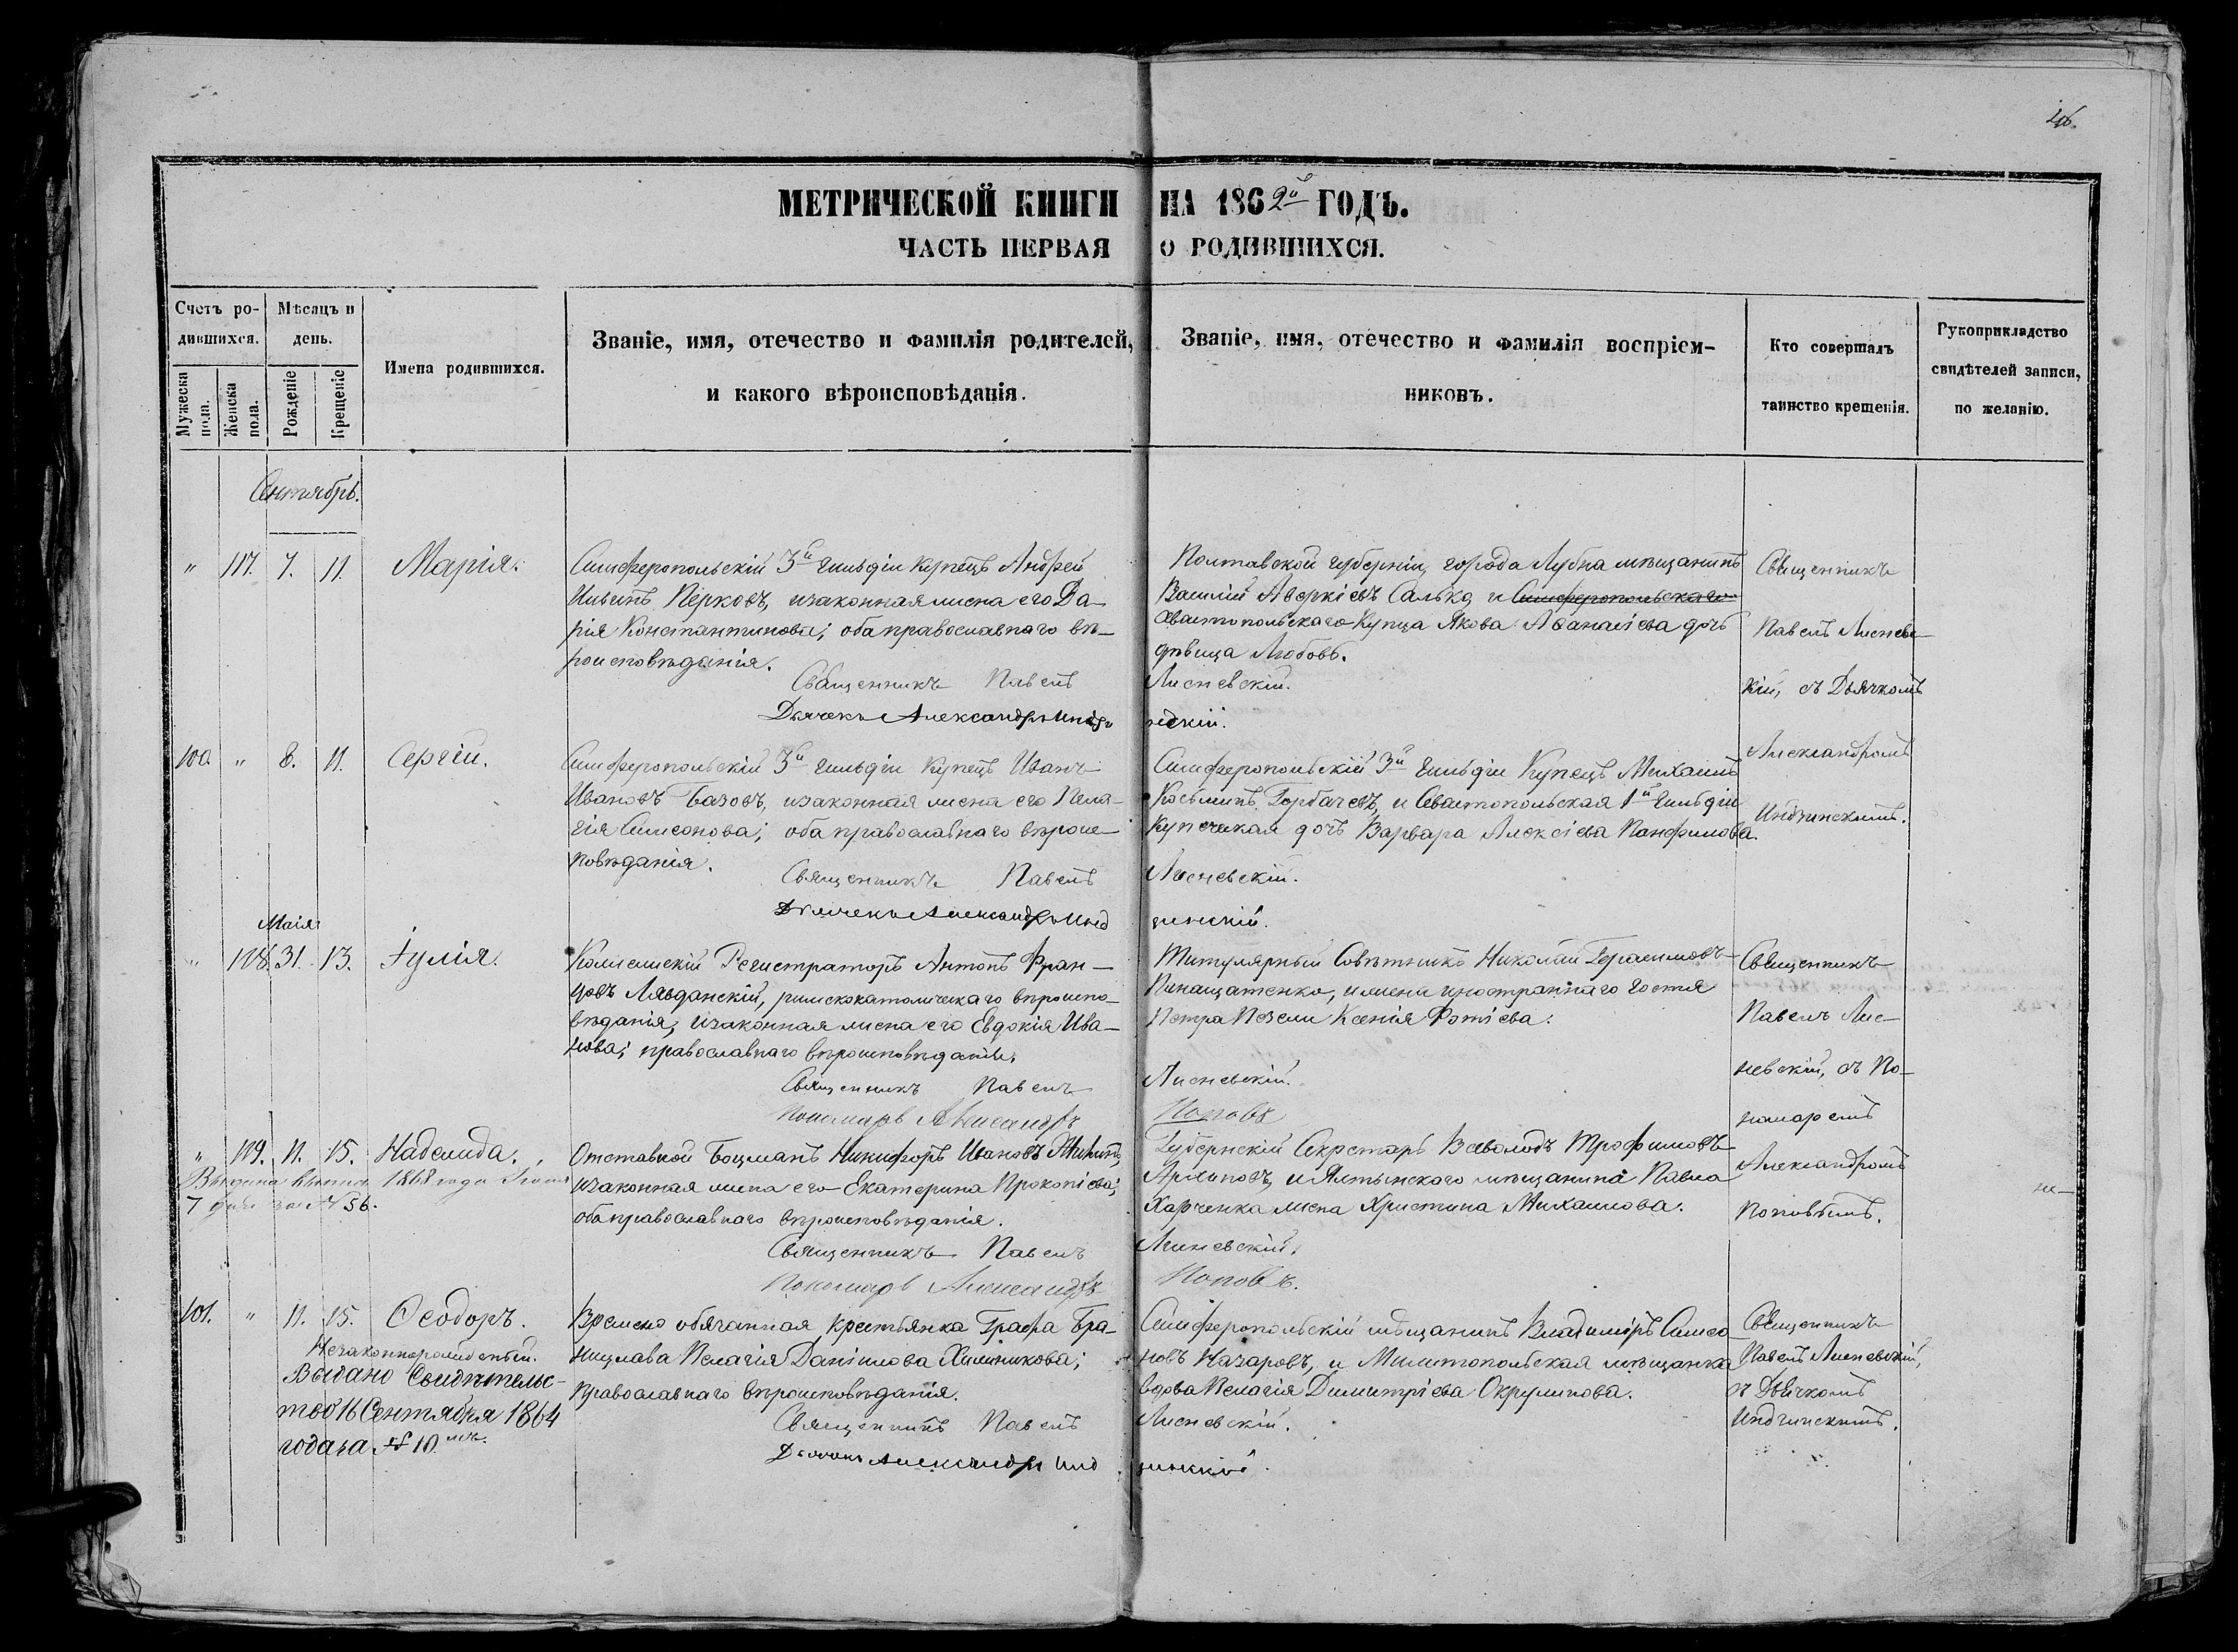 46.
МЕТРИЧЕСКОЙ КНИГИ НА 1862й ГОДЪ.
ЧАСТЬ ПЕРВАЯ О РОДИВШИХСЯ.
Счетъ ро-
дившихся.
Мужеска пола.
Женска пола.
Мѣсяцъ и
день.
Рожденіе
Крещеніе
Имена родившихся.
Званіе, имя, отечество и фамилія родителей,
и какого вѣроисповѣданія.
Званіе, имя, отечество и фамилія воспріем-
никовъ.
Кто совершалъ
таинство крещенія.
Рукоприкладство
свидѣтелей записи,
по желанію.
Сентябрь.
" 117. 7. 11. Марія.
Симферопольскій 3й гильдіи купецъ Андрей
Ильинъ Перковъ, и законная жена его Да-
рія Константинова; оба православнаго вѣ-
роисповѣданія.
Священникъ Павелъ Лисневскій.
Дьячекъ Александръ
Полтавской губерніи, города Лубна мѣщанинъ
Василій Аверкіевъ Салько, и Симферопольскаго
Севастопольскаго купца Якова Аѳанасіева дочь
дѣвица Любовь.
Священникъ
Павелъ Лиснев-
кій, съ Дьячкомъ
Александромъ
Индзинскимъ.
100. " 8. 11. Сергій.
Симферопольскій 3й гильдіи купецъ Иванъ
Ивановъ Базовъ, и законная жена его Пела-
гія Симеонова; оба православнаго вѣроис-
повѣданія.
Священникъ Павелъ Лисневскій.
Дьячекъ Александръ Индзинскій.
Симферопольскій 3й гильдіи купецъ Михаилъ
Косьминъ Горбачевъ, и Севастопольская 1й гильдіи
купеческая дочь Варвара Алексіева Панфилова.
Маія
" 118. 31. 13. Іулія.
Коллежскій Регистраторъ Антонъ Фран-
цовъ Лявданскій, римскокатолическаго вѣроиспо-
вѣданія, и законная жена его Евдокія Ива-
нова; православнаго вѣроисповѣданія.
Священникъ Павелъ Лисневскій.
Пономарь Александръ Поповъ
Титулярный Совѣтникъ Николай Герасимовъ
Панащатенко, и жена иностраннаго гостя
Петра Ксенія Фотіева.
Священникъ
Павелъ Лис-
невскій, съ По-
номаремъ
Александромъ
Поповымъ.
" 119. 11. 15. Надежда.
1868 года
7 дня за № 56.
Отставной Боцманъ Никифоръ Ивановъ Жи
и законная жена его Екатерина Прокопіева;
оба православнаго вѣроисповѣданія.
Священникъ Павелъ Лисневскій.
Пономарь Александръ Поповъ.
Губернскій Секретарь Всеволодъ Трофимовъ
Архиповъ, и Ялтынскаго мѣщанина Павла
Харченка жена Христина Михаилова.
101. " 11. 15. Ѳеодоръ.
Незаконнорожденный.
Выдано Свидѣтельс-
тво 16 Сентября 1864
года за № 10.мъ
Временно обязанная крестьянка Графа Бра-
ницлава Пелагія Даніилова Химникова;
православнаго вѣроисповѣданія.
Священникъ Павелъ Лисневскій.
Дьячекъ Александръ Индзинскій.
Симферопольскій мѣщанинъ Владиміръ Симео-
новъ Назаровъ, и Мелитопольская мѣщанка
вдова Пелагія Димитріева
Священникъ
Павелъ Лисневскій,
съ Дьячкомъ
Индзинскимъ.